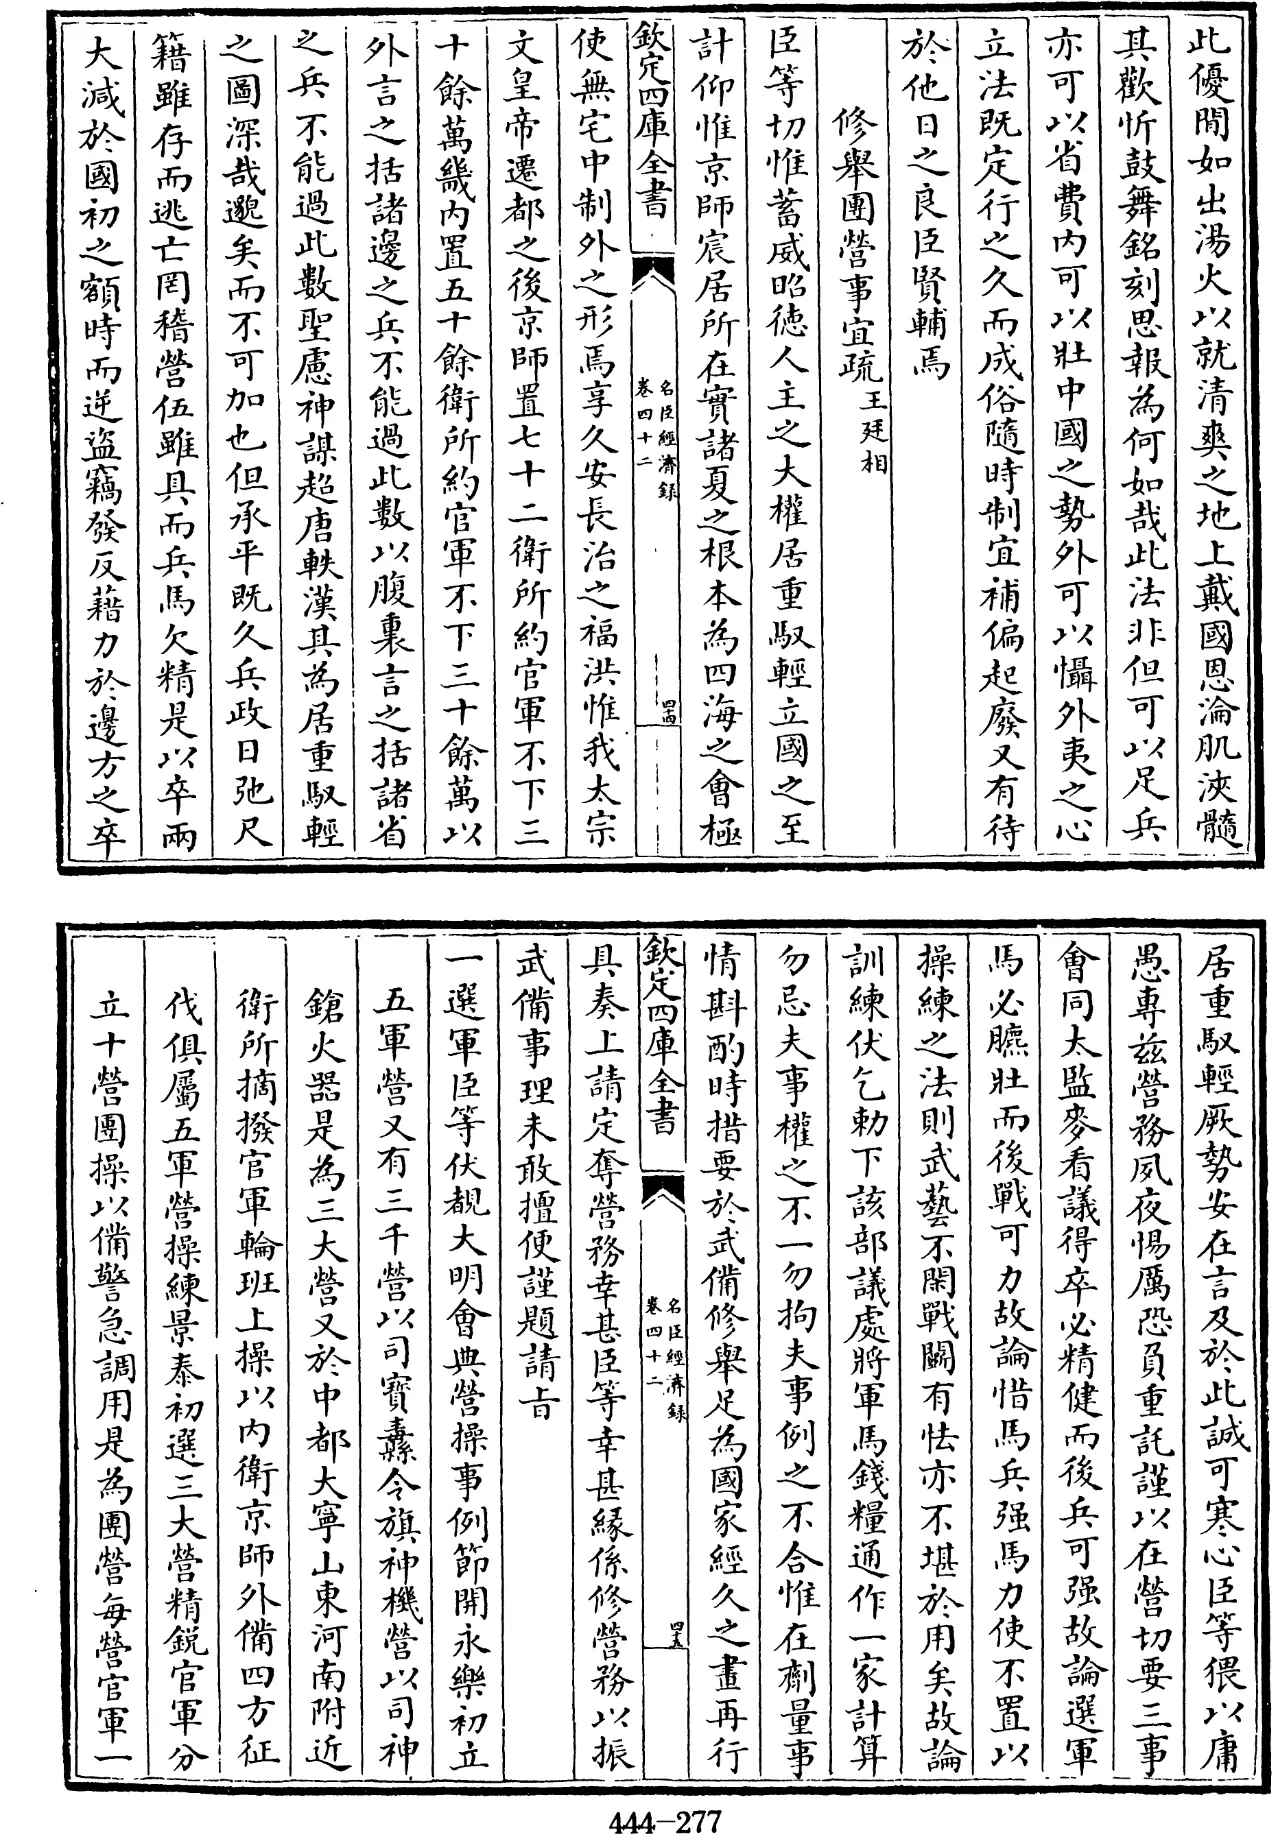 此優閒如出湯火以就清爽之地上戴國恩淪肌浹髓
其歡忻鼓舞銘刻思報為何如哉此法非但可以足兵
亦可以省費内可以壯中國之勢外可以懾外夷之心
立法既定行之久而成俗隨時制宜補偏起廢又有待
於他日之良臣賢輔焉
修舉團營事宜疏王廷相
臣等切惟蓄威昭德人主之大權居重馭輕立國之至
計仰惟京師宸居所在實諸夏之根本為四海之會極
欽定四庫全書
名臣經濟録
卷四十二
四十四
使無宅中制外之形焉享久安長治之福洪惟我太宗
文皇帝遷都之後京師置七十二衛所約官軍不下三
十餘萬畿内置五十餘衛所約官軍不下三十餘萬以
外言之括諸邊之兵不能過此數以腹裏言之括諸省
之兵不能過此數聖慮神謀超唐軼漢其為居重馭輕
之圖深哉邈矣而不可加也但承平既久兵政日弛尺
籍雖存而逃亡罔稽營伍雖具而兵馬欠精是以卒兩
大減於國初之額時而逆盜竊發反藉力於邊方之卒
居重馭輕厥勢安在言及於此誠可寒心臣等猥以庸
愚專兹營務夙夜惕厲恐負重託謹以在營切要三事
會同太監麥看議得卒必精健而後兵可强故論選軍
馬必臕壯而後戰可力故論惜馬兵强馬力使不置以
操練之法則武藝不閑戰鬭有怯亦不堪於用矣故論
訓練伏乞勅下該部議處將軍馬錢糧通作一家計算
勿忌夫事權之不一勿拘夫事例之不合惟在劑量事
情斟酌時措要於武備修舉足為國家經久之畫再行
欽定四庫全書
名臣經濟録
卷四十二
四十五
具奏上請定奪營務幸甚臣等幸甚緣係修營務以振
武備事理未敢擅便謹題請旨
一選軍臣等伏覩大明會典營操事例節開永樂初立
五軍營又有三千營以司寶纛令旗神機營以司神
鎗火器是為三大營又於中都大寧山東河南附近
衛所摘撥官軍輪班上操以内衛京師外備四方征
伐俱屬五軍營操練景泰初選三大營精鋭官軍分
立十營團操以備警急調用是為團營每營官軍一
444-277